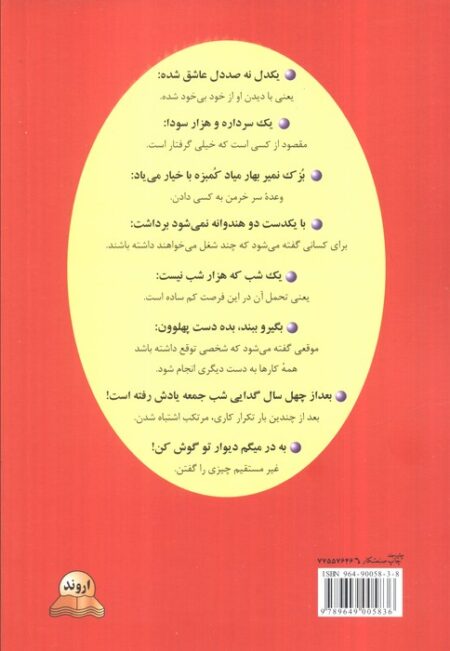 یکدل نه صددل عاشق شده:
یعنی با دیدن او از خود بی‌خود شده.
یک سرداره و هزار سودا:
مقصود از کسی است که خیلی گرفتار است.
بُزک نمیر بهار میاد کُمبزه با خیار می‌یاد:
وعدهٔ سر خرمن به کسی دادن.
با یکدست دو هندوانه نمی‌شود برداشت:
برای کسانی گفته می‌شود که چند شغل می‌خواهند داشته باشند.
یک شب که هزار شب نیست:
یعنی تحمل آن در این فرصت کم ساده است.
بگیرو ببند، بده دست پهلوون:
موقعی گفته می‌شود که شخصی توقع داشته باشد
همهٔ کارها به دست دیگری انجام شود.
بعداز چهل سال گدایی شب جمعه یادش رفته است!
بعد از چندین بار تکرار کاری، مرتکب اشتباه شدن.
به در میگم دیوار تو گوش کن!
غیر مستقیم چیزی را گفتن.
اروند
ISBN 964-90058-3-8
9 789649 005836